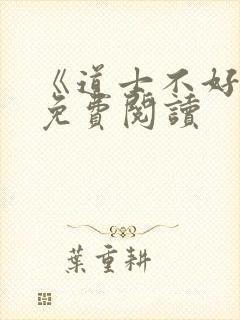 《道士不好
免費閱讀
葉重耕